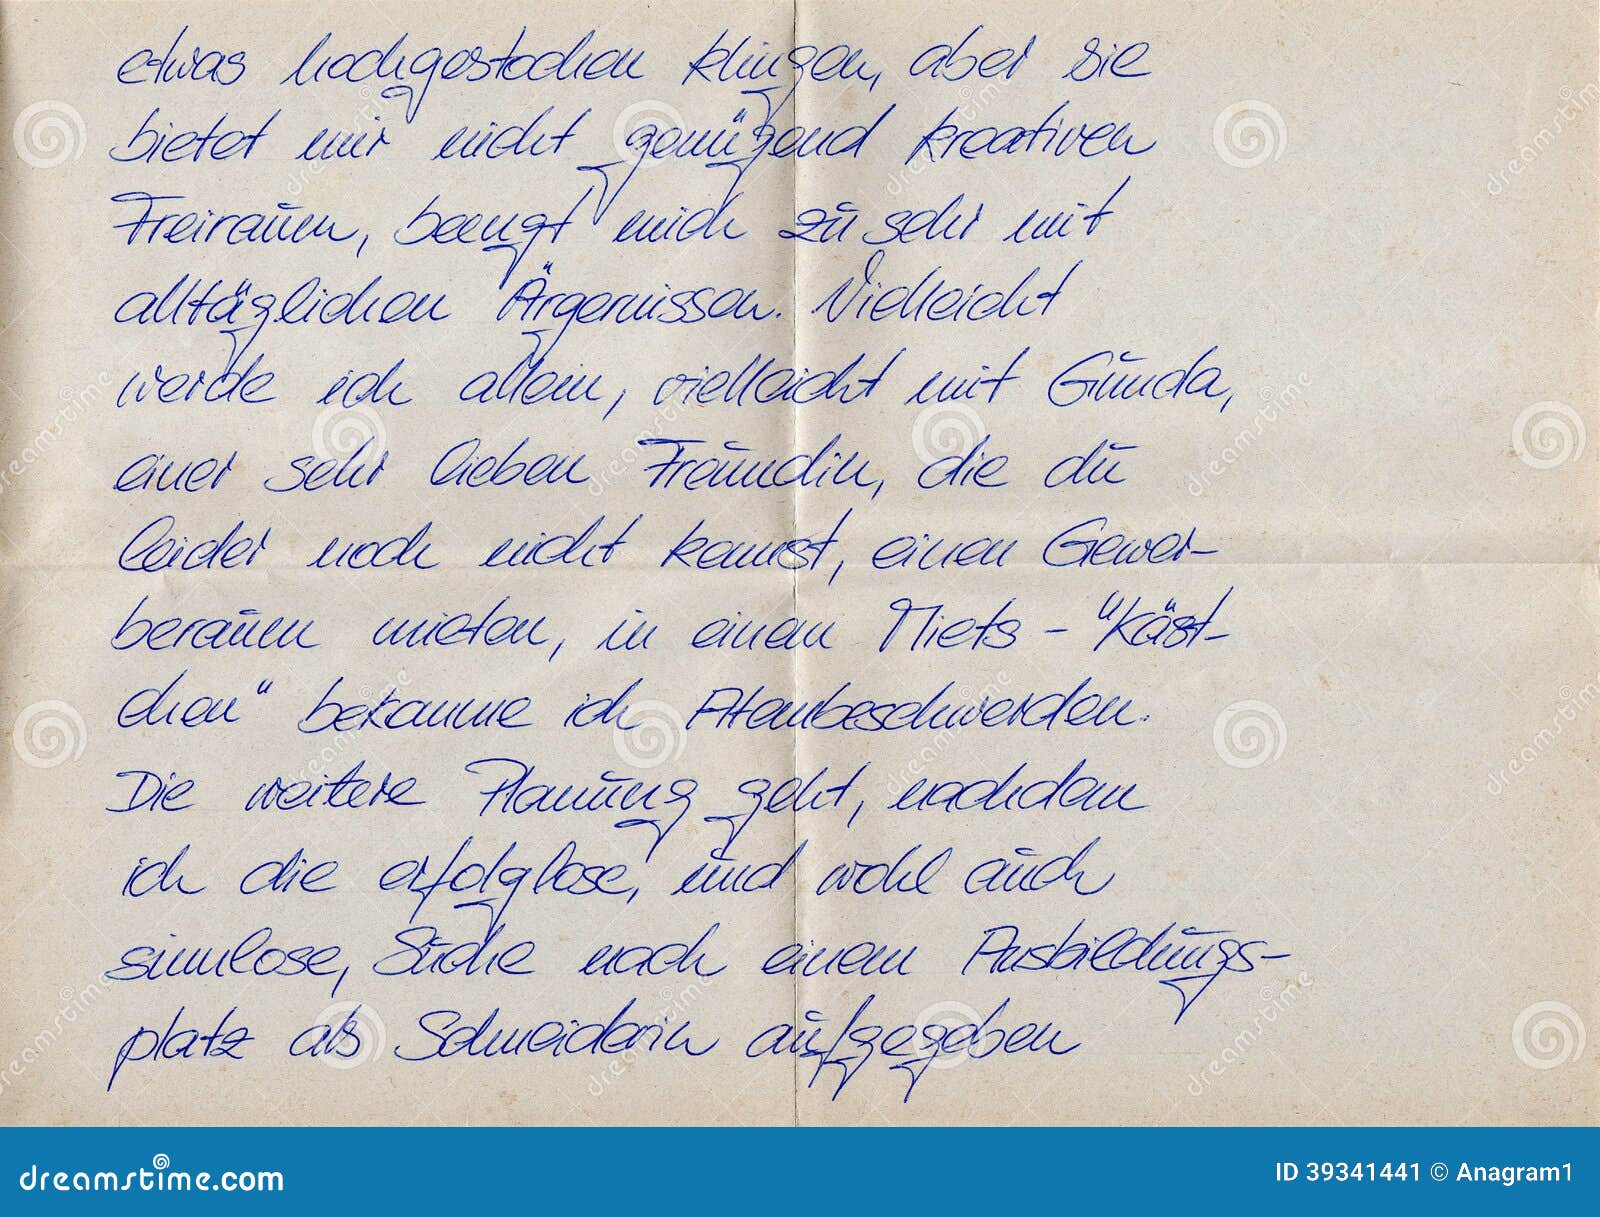 etwas hochgestochen klingen, aber sie
bietet mir nicht genügend kreativen
Freiraum, beengt mich zu sehr mit
alltäglichen Ärgernissen. Vielleicht
werde ich allein, vielleicht mit Gunda,
einer sehr lieben Freundin, die du
leider noch nicht kennst, einen Gewer-
beraum mieten, in einem Miets - "Käst-
chen" bekomme ich Atembeschwerden.
Die weitere Planung geht, nachdem
ich die erfolglose, und wohl auch
sinnlose, Suche nach einem Ausbildungs-
platz als Schneiderin aufgegeben
dreamstime.com
ID 39341441 © Anagram1